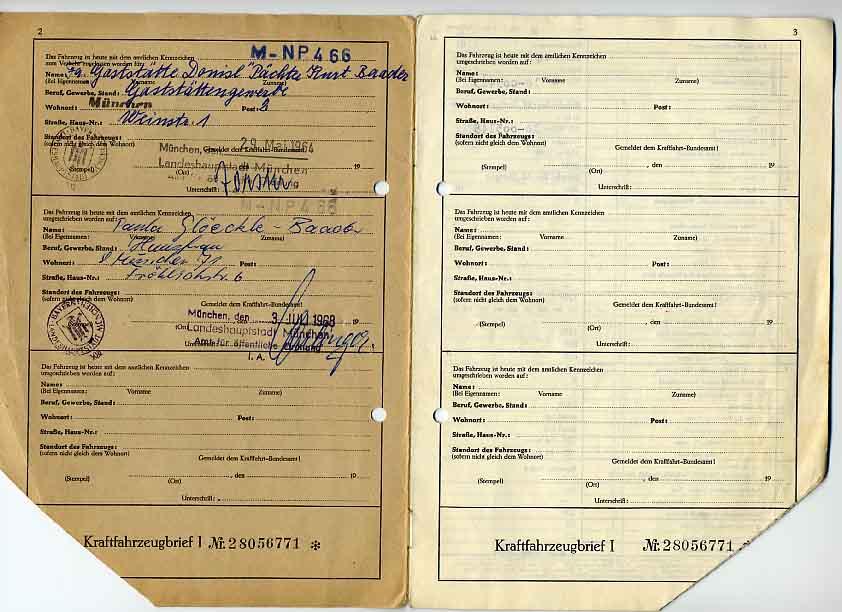 2
Das Fahrzeug ist heute mit dem amtlichen Kennzeichen M-NP 466
zum Verkehr zugelassen worden für:
Name: Fa. Gaststätte Donisl" Pächter Kurt Baader
(Bei Eigennamen: Vorname Zuname)
Beruf, Gewerbe, Stand: Gaststättengewerbe
Wohnort: München Post: 2
Straße, Haus-Nr.: Weinstr. 1
Standort des Fahrzeugs:
(sofern nicht gleich dem Wohnort) Gemeldet dem Kraftfahrt-Bundesamt!
München, 29. Mai 1964
(Stempel) (Ort) Landeshauptstadt München 19
Unterschrift:
Das Fahrzeug ist heute mit dem amtlichen Kennzeichen M-NP 466
umgeschrieben worden auf:
Name: Glöckle - Baader
(Bei Eigennamen: Vorname Zuname)
Beruf, Gewerbe, Stand: Hausfrau
Wohnort: 8 München 71 Post:
Straße, Haus-Nr.: 6
Standort des Fahrzeugs:
(sofern nicht gleich dem Wohnort) Gemeldet dem Kraftfahrt-Bundesamt!
München, den 3. 1968 19
(Ort) Landeshauptstadt München
Unterschrift: Amt für öffentliche Ordnung
I. A.
Das Fahrzeug ist heute mit dem amtlichen Kennzeichen
umgeschrieben worden auf:
Name:
(Bei Eigennamen: Vorname Zuname)
Beruf, Gewerbe, Stand:
Wohnort: Post:
Straße, Haus-Nr.:
Standort des Fahrzeugs:
(sofern nicht gleich dem Wohnort) Gemeldet dem Kraftfahrt-Bundesamt!
, den 19
(Stempel) (Ort)
Unterschrift:
Kraftfahrzeugbrief I Nr. 28056771 *
3
Das Fahrzeug ist heute mit dem amtlichen Kennzeichen
umgeschrieben worden auf:
Name:
(Bei Eigennamen: Vorname Zuname)
Beruf, Gewerbe, Stand:
Wohnort: Post:
Straße, Haus-Nr.:
Standort des Fahrzeugs:
(sofern nicht gleich dem Wohnort) Gemeldet dem Kraftfahrt-Bundesamt!
, den 19
(Stempel) (Ort)
Unterschrift:
Das Fahrzeug ist heute mit dem amtlichen Kennzeichen
umgeschrieben worden auf:
Name:
(Bei Eigennamen: Vorname Zuname)
Beruf, Gewerbe, Stand:
Wohnort: Post:
Straße, Haus-Nr.:
Standort des Fahrzeugs:
(sofern nicht gleich dem Wohnort) Gemeldet dem Kraftfahrt-Bundesamt!
, den 19
(Stempel) (Ort)
Unterschrift:
Das Fahrzeug ist heute mit dem amtlichen Kennzeichen
umgeschrieben worden auf:
Name:
(Bei Eigennamen: Vorname Zuname)
Beruf, Gewerbe, Stand:
Wohnort: Post:
Straße, Haus-Nr.:
Standort des Fahrzeugs:
(sofern nicht gleich dem Wohnort) Gemeldet dem Kraftfahrt-Bundesamt!
, den 19
(Stempel) (Ort)
Unterschrift:
Kraftfahrzeugbrief I Nr. 28056771 *